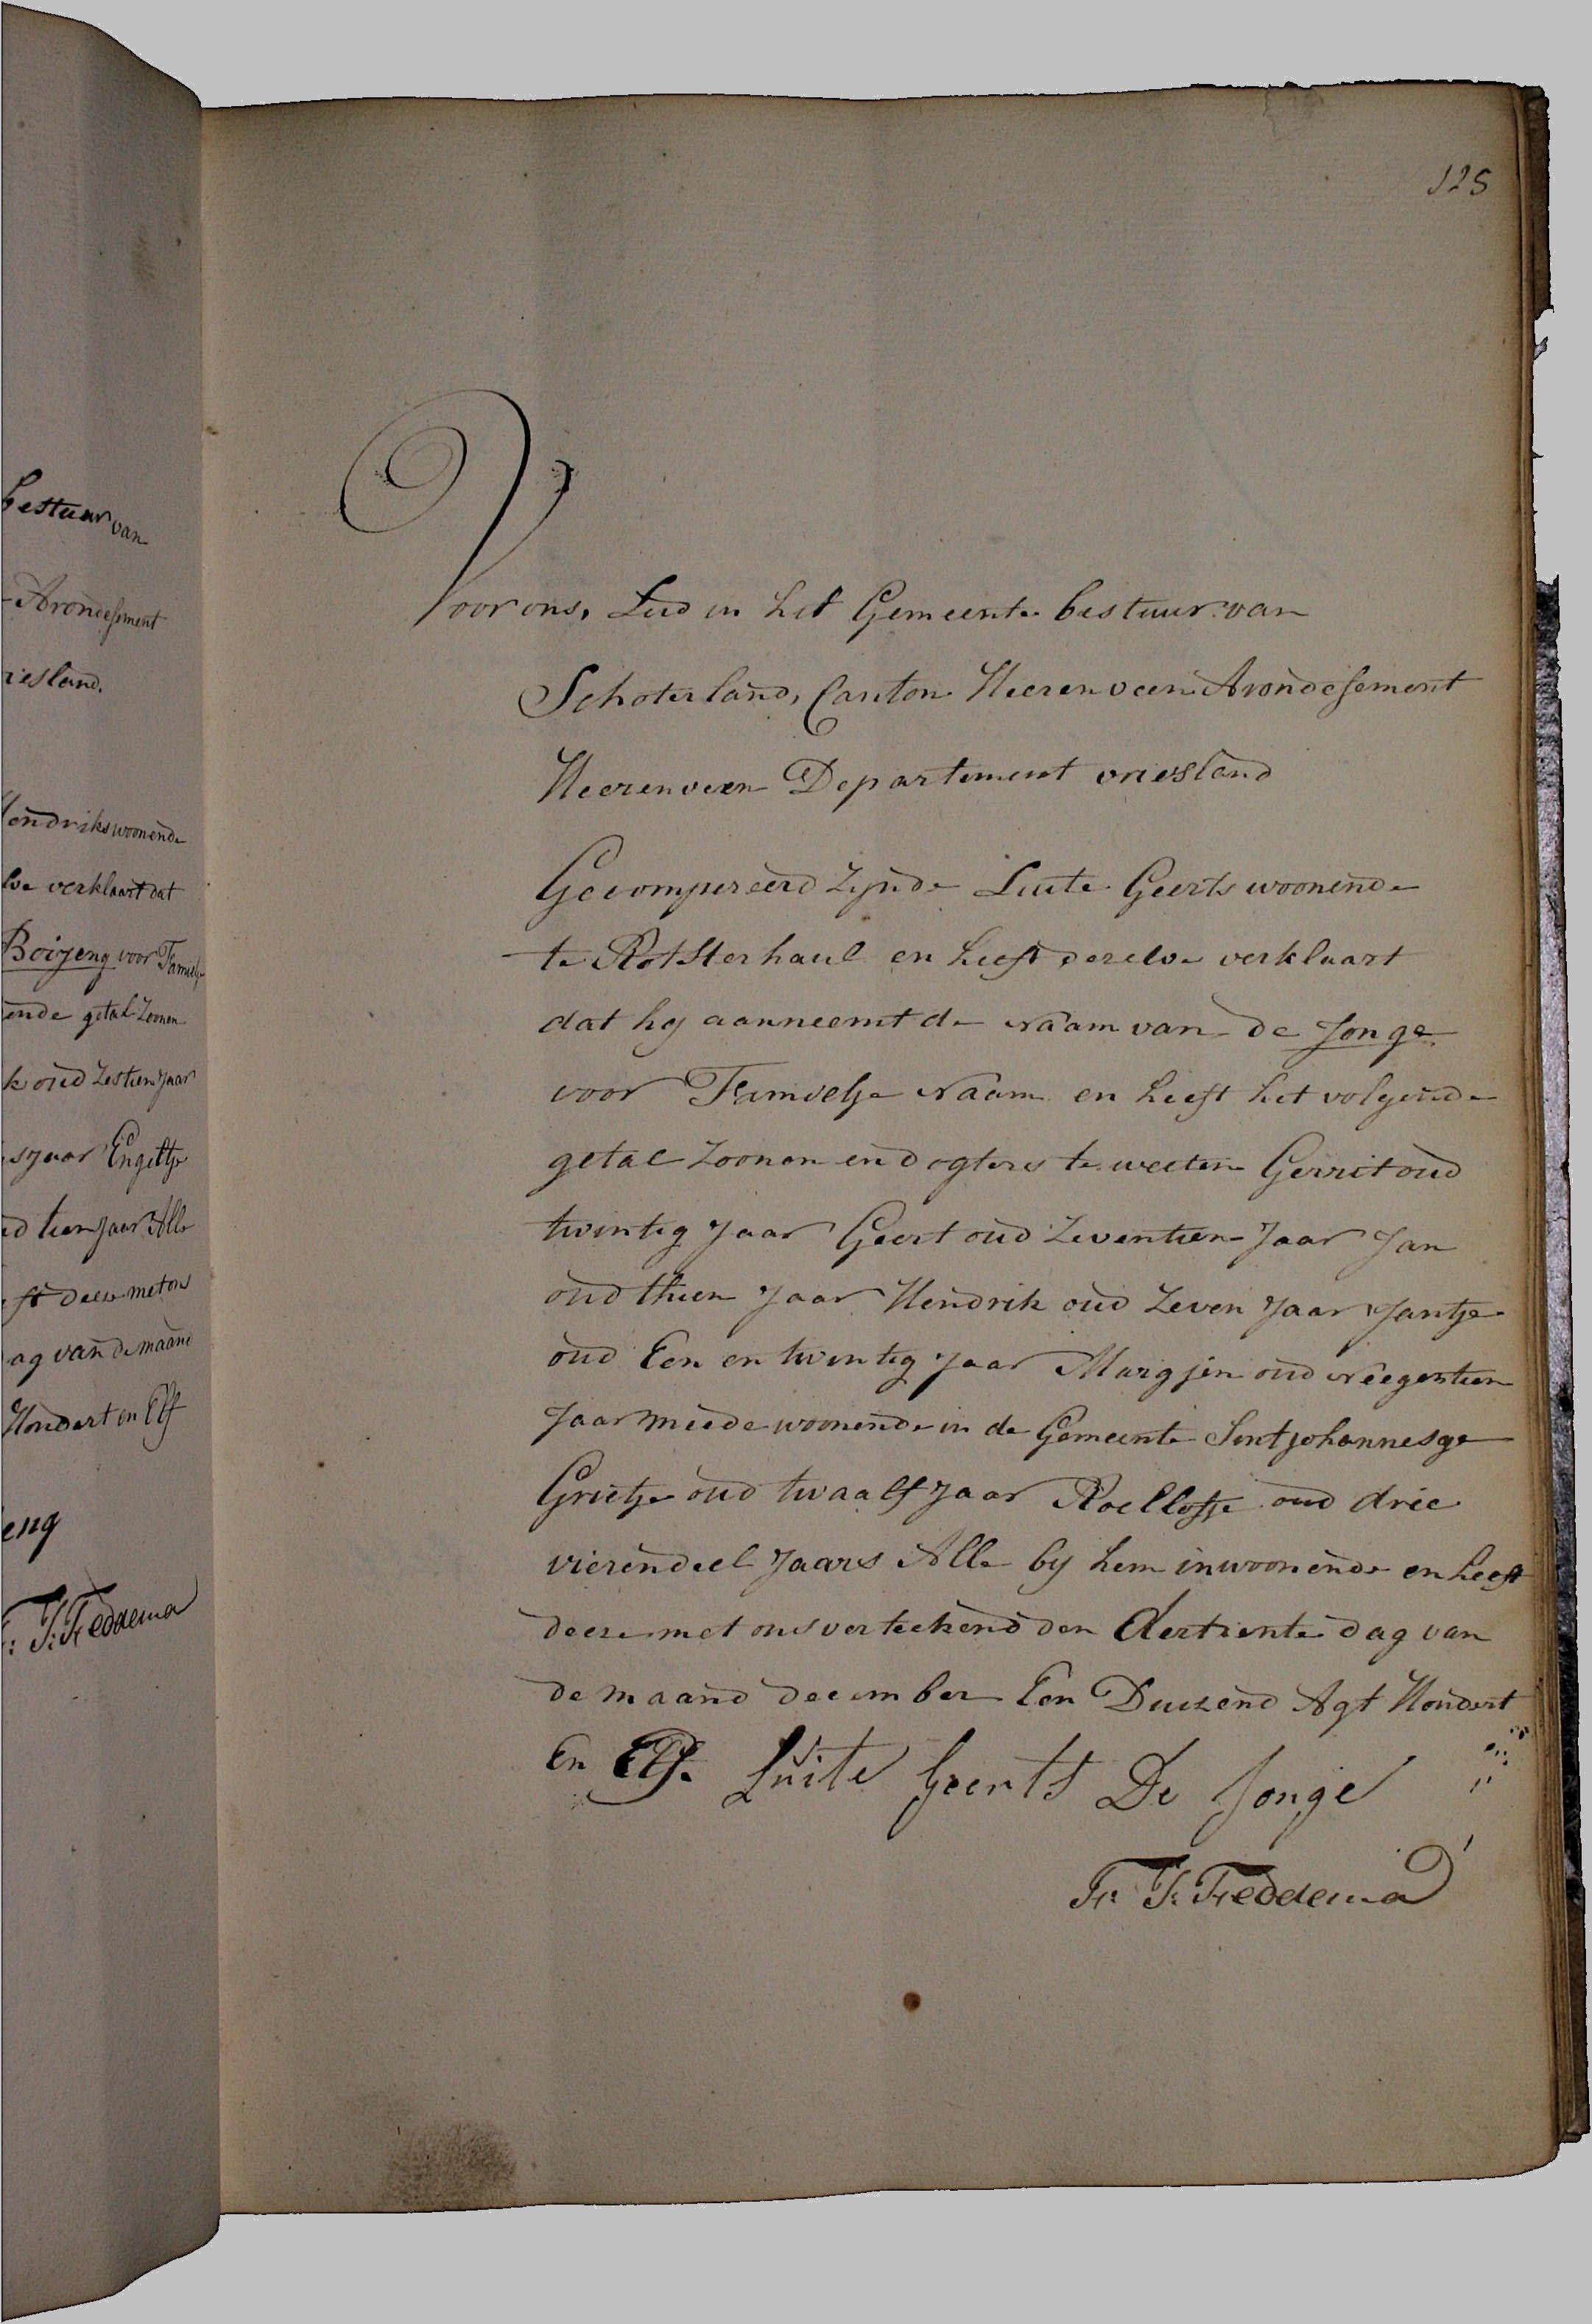 bestuur van
Arondesement
riesland.
Hendriks woonende
lve verklaart dat
Boijeng voor Famielje
ende getal Zoonen
k oud Zestien Jaar
s jaar Engeltje
ud tien Jaar Alle
ft deese met ons
ag van de maand
Hondert en Elf
eng
F: J: Feddema
125
Voor ons, Lid in het Gemeente bestuur van
Schoterland, Canton Heerenveen Arondesement
Heerenveen Departement vriesland
Gecompereerd Zynde Luite Geerts woonende
te Rotsterhaul en heeft dezelve verklaart
dat hy aanneemt de Naam van de Jonge
voor Famielje Naam en heeft het volgende
getal Zoonen en dogters te weeten Gerrit oud
twintig Jaar Geert oud Zeventien Jaar Jan
oud thien Jaar Hendrik oud Zeven Jaar Jantje
oud Een en twintig Jaar Margjen oud Neegentien
Jaar meede woonende in de Gemeente Sintjohannesge
Grietje oud twaalf Jaar Roelofje oud drie
vierendeel Jaars Alle by hem inwoonende en heeft
deese met ons verteekend den dertiente dag van
de maand december Een Duizend Agt Hondert
En Elf. Luite Geerts De Jonge
Fr: J: Feddema